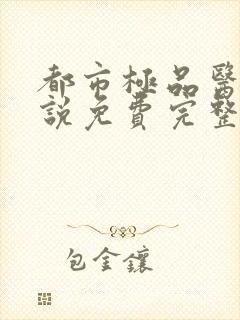 都市極品醫
說免費完整
包金鑲